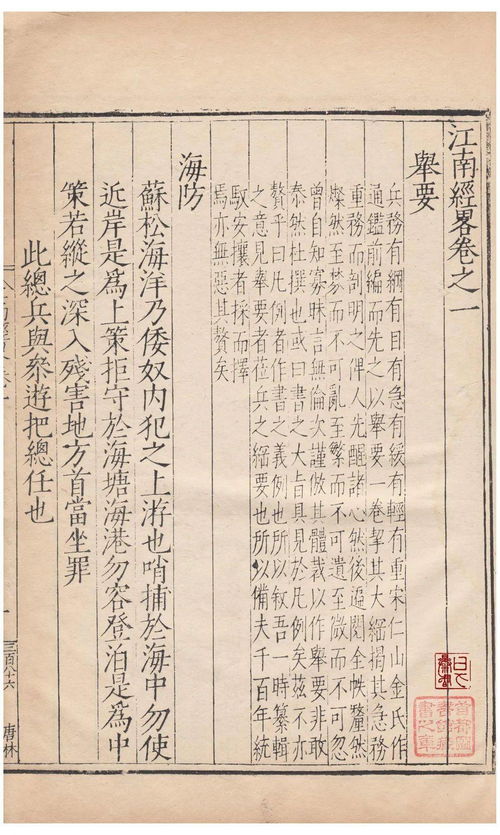 江南經畧卷之一
舉要
兵務有綱有目有急有緩有輕有重宋仁山金氏作
通鑑前編而先之以舉要一卷挈其大綱揭其急務
重務而剖明之俾人先醒諸心然後遍閱全帙釐然
燦然至棼而不可亂至繁而不可遺至微而不可忽
曾自知寡昧言無倫次謹倣其體裁以作舉要非敢
泰然杜撰也或曰書之大旨具見於凡例矣茲不亦
贅乎曰凡例者作書之義例也所以敘吾一時纂輯
之意見舉要者莅兵之綱要也所以備夫千百年統
馭安攘者採而擇
焉亦無惡其贅矣
海防
蘇松海洋乃倭奴内犯之上游也哨捕於海中勿使
近岸是爲上策拒守於海塘海港勿容登泊是爲中
策若縱之深入殘害地方首當坐罪
此總兵與叅遊把總任也
三百八十六
唐林